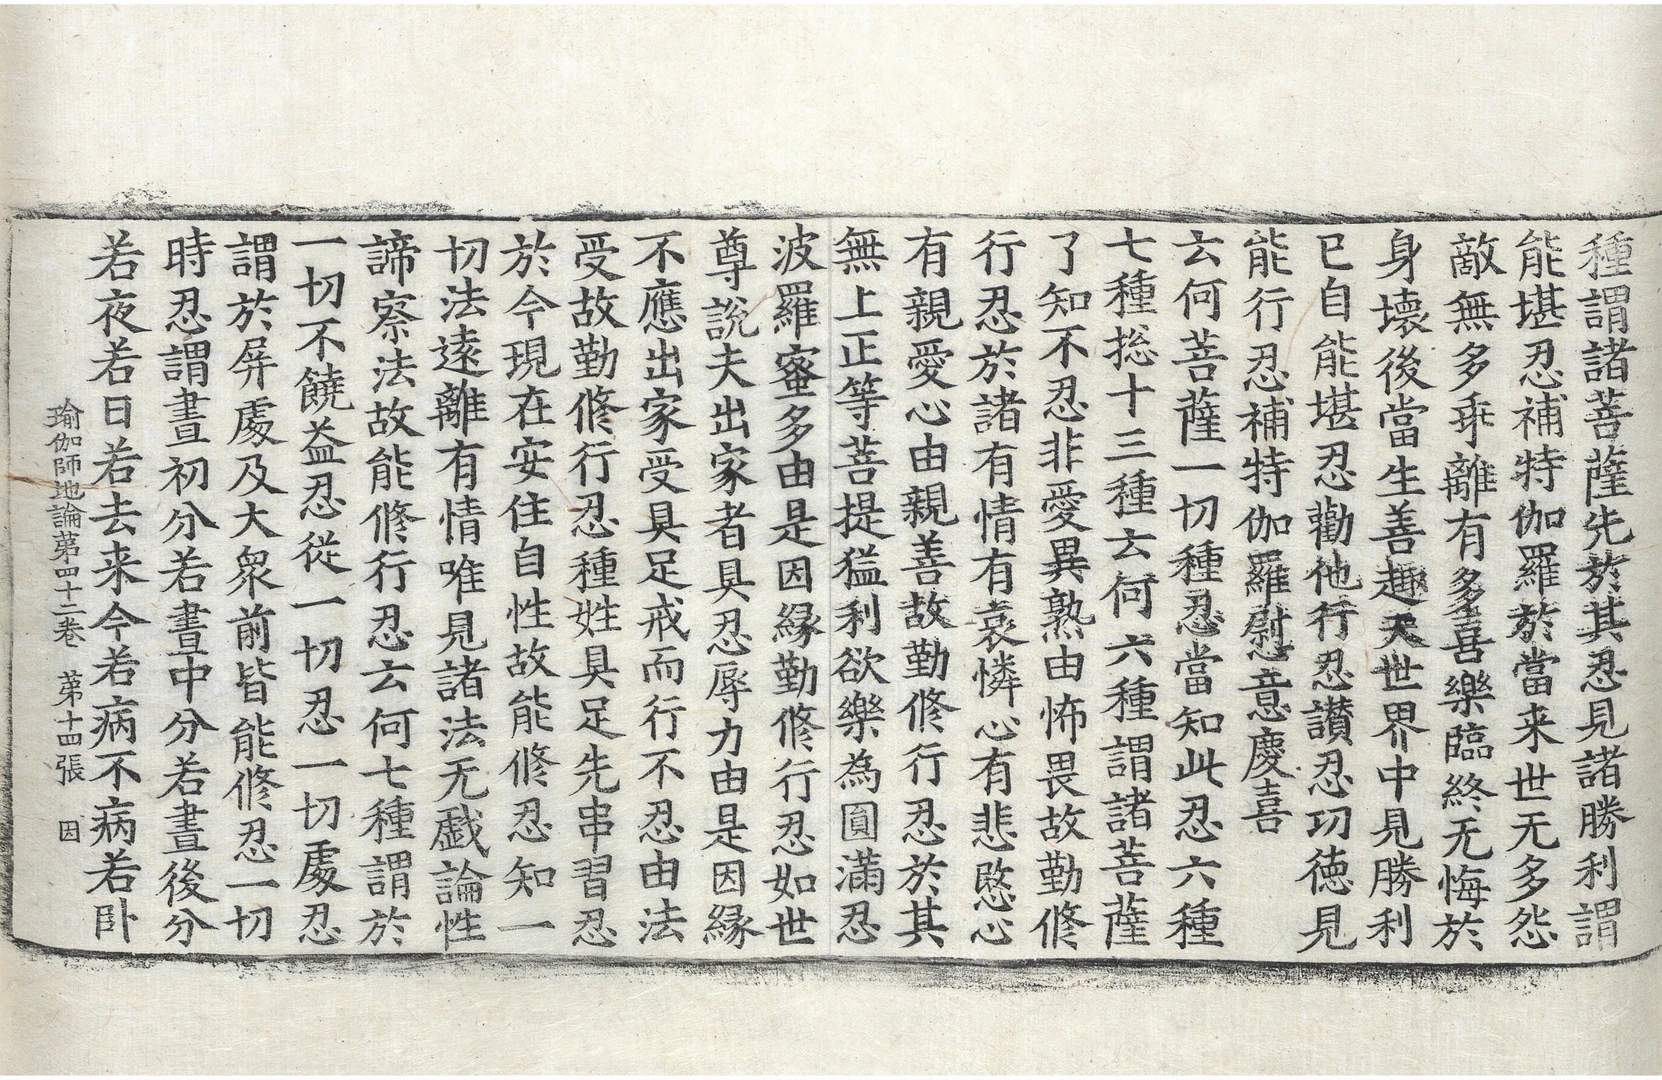 種謂諸菩薩先於其忍見諸勝利謂
能堪忍補特伽羅於當来世无多怨
敵無多乖離有多喜樂臨終无悔於
身壊後當生善趣天世界中見勝利
已自能堪忍勸他行忍讃忍功徳見
能行忍補特伽羅慰意慶喜
云何菩薩一切種忍當知此忍六種
七種揔十三種云何六種謂諸菩薩
了知不忍非愛異熟由怖畏故勤修
行忍於諸有情有哀憐心有悲愍心
有親愛心由親善故勤修行忍於其
無上正等菩提猛利欲樂為圓滿忍
波羅蜜多由是因縁勤修行忍如世
尊說夫出家者具忍辱力由是因縁
不應出家受具足戒而行不忍由法
受故勤修行忍種姓具足先串習忍
於今現在安住自性故能修忍知一
切法逺離有情唯見諸法无戯論性
諦察法故能修行忍云何七種謂於
一切不饒益忍從一切忍一切處忍
謂於屏處及大衆前皆能修忍一切
時忍謂晝初分若晝中分若晝後分
若夜若日若去来今若病不病若卧
瑜伽師地論第四十二巻 第十四張 因